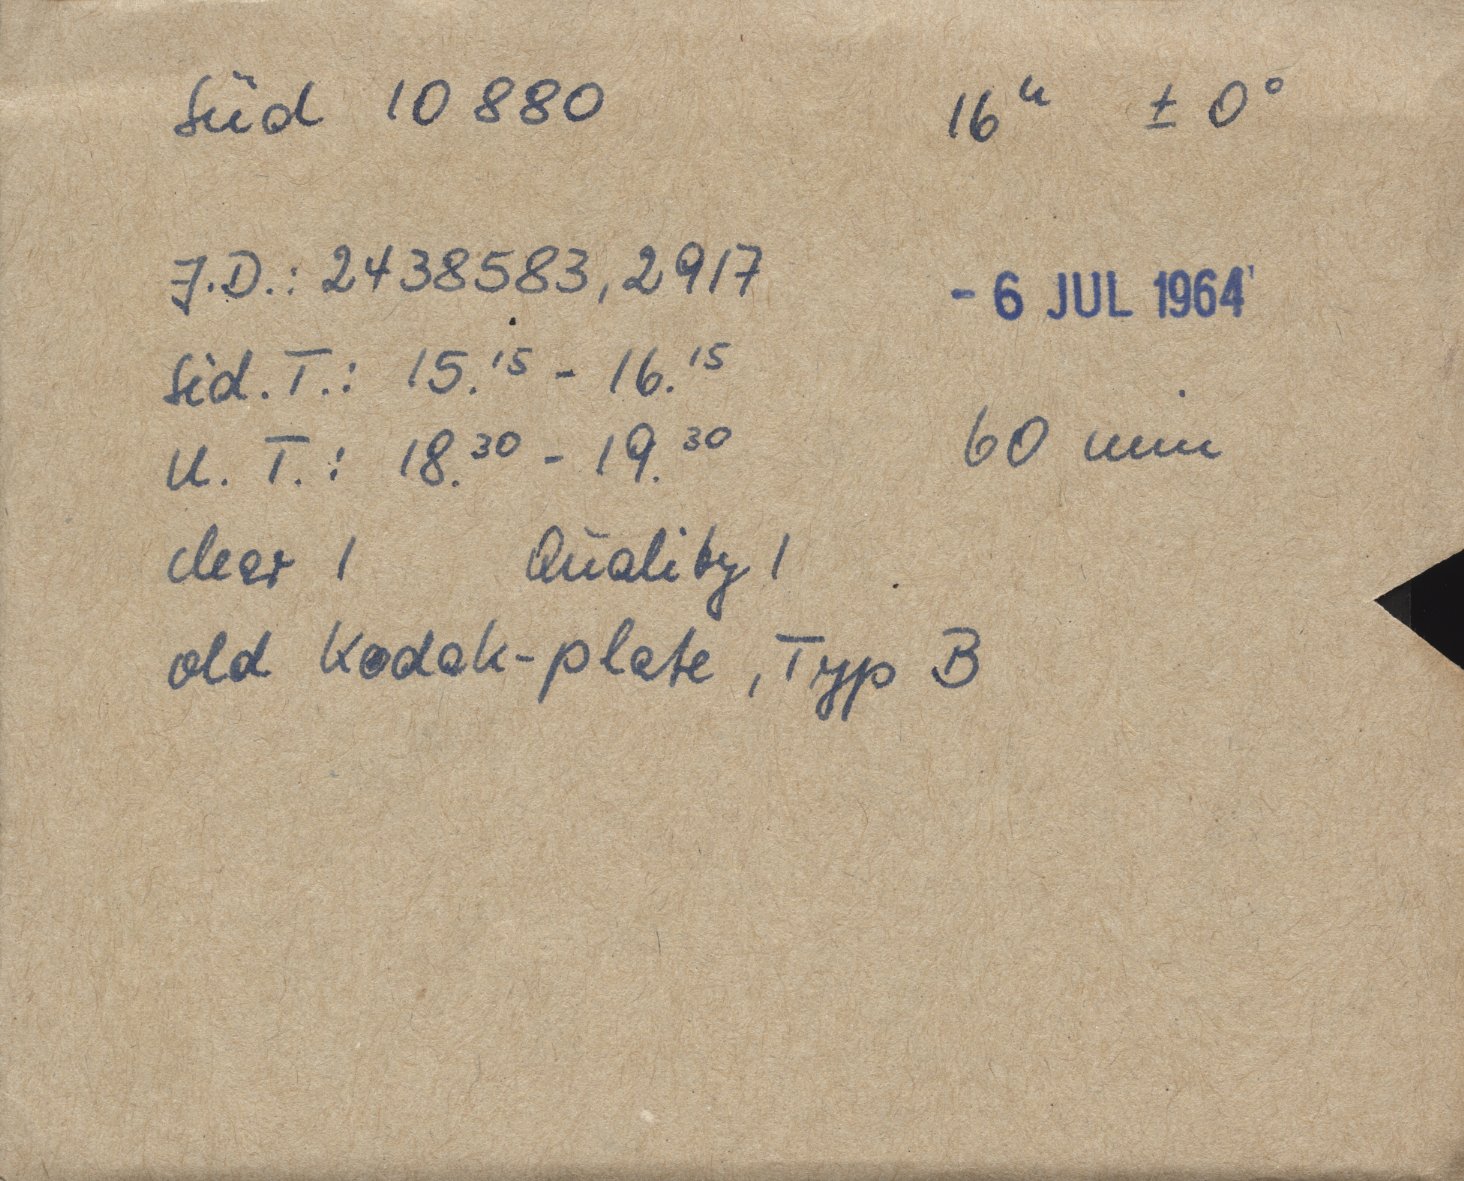 Süd 10 880 16ʰ ± 0°
J.D.: 2438583,2917 - 6 JUL 1964
Sid. T.: 15.¹⁵ - 16.¹⁵
U. T.: 18.³⁰ - 19.³⁰ 60 min
clear 1 Quality 1
old Kodak-plate, Typ B